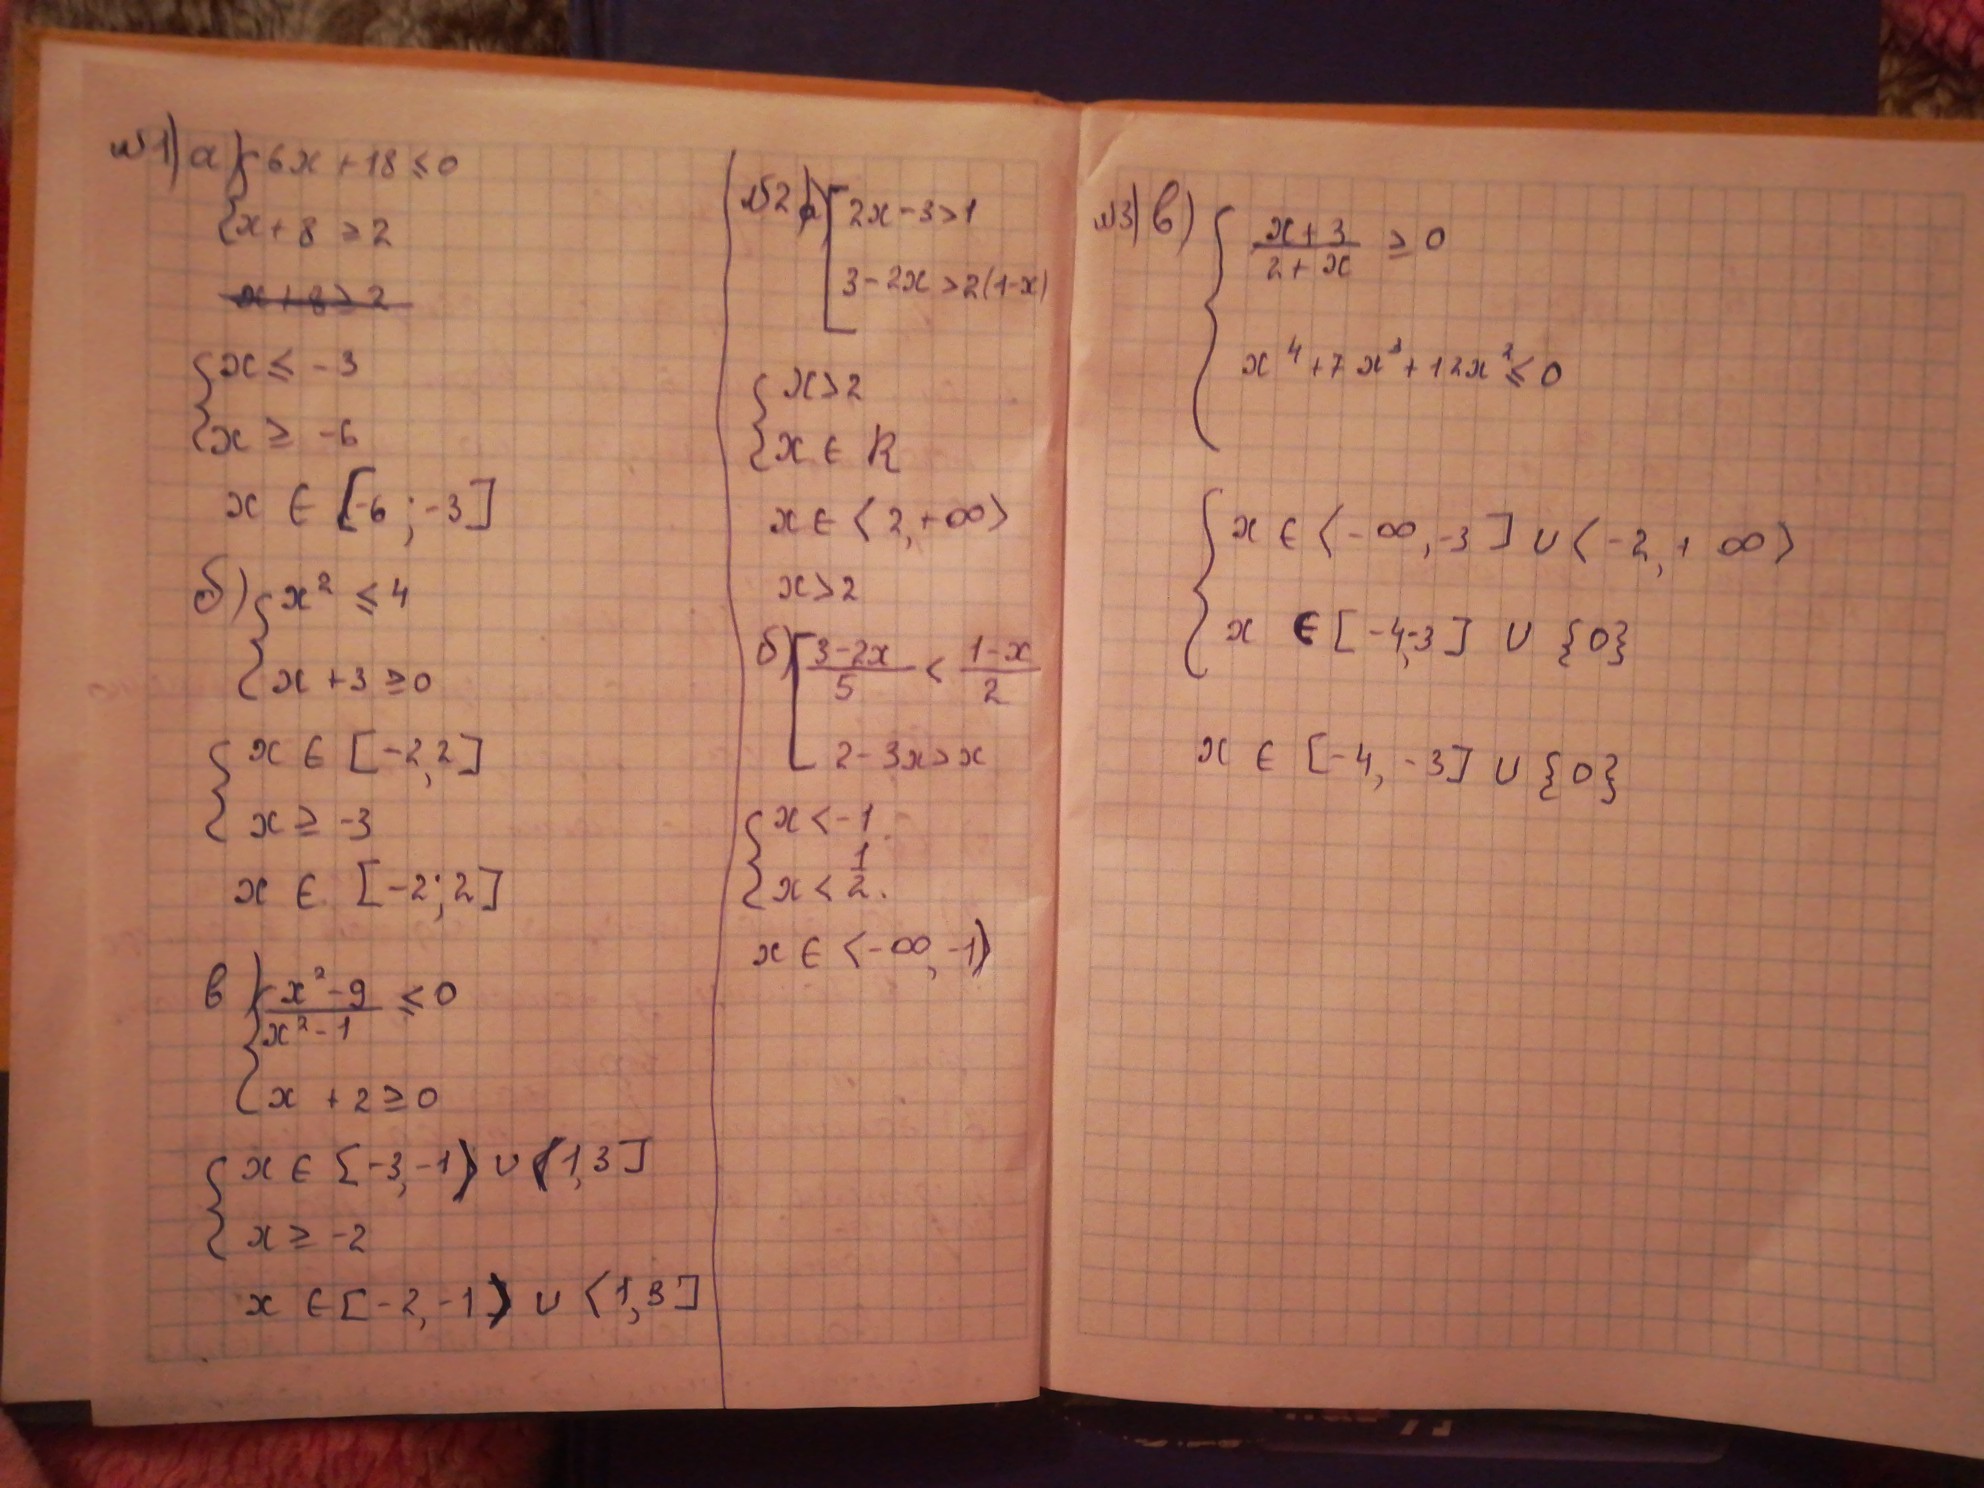 №1) а) { 6x + 18 ≤ 0
x + 8 ≥ 2
x + 8 ≥ 2
{ x ≤ -3
x ≥ -6
x ∈ [-6 ; -3]
б) { x² ≤ 4
x + 3 ≥ 0
{ x ∈ [-2, 2]
x ≥ -3
x ∈ [-2; 2]
в) { (x² - 9)/(x² - 1) ≤ 0
x + 2 ≥ 0
{ x ∈ [-3, -1) ∪ (1, 3]
x ≥ -2
x ∈ [-2, -1) ∪ ⟨1, 3]
№2 а) [ 2x - 3 > 1
3 - 2x > 2(1-x)
{ x > 2
x ∈ R
x ∈ ⟨2, +∞⟩
x > 2
б) [ (3-2x)/5 < (1-x)/2
2 - 3x > x
{ x < -1
x < 1/2.
x ∈ ⟨-∞, -1)
№3) в) { (x + 3)/(2 + x) ≥ 0
x⁴ + 7x³ + 12x² ≤ 0
{ x ∈ ⟨-∞, -3] ∪ ⟨-2, +∞⟩
x ∈ [-4,-3] ∪ {0}
x ∈ [-4, -3] ∪ {0}